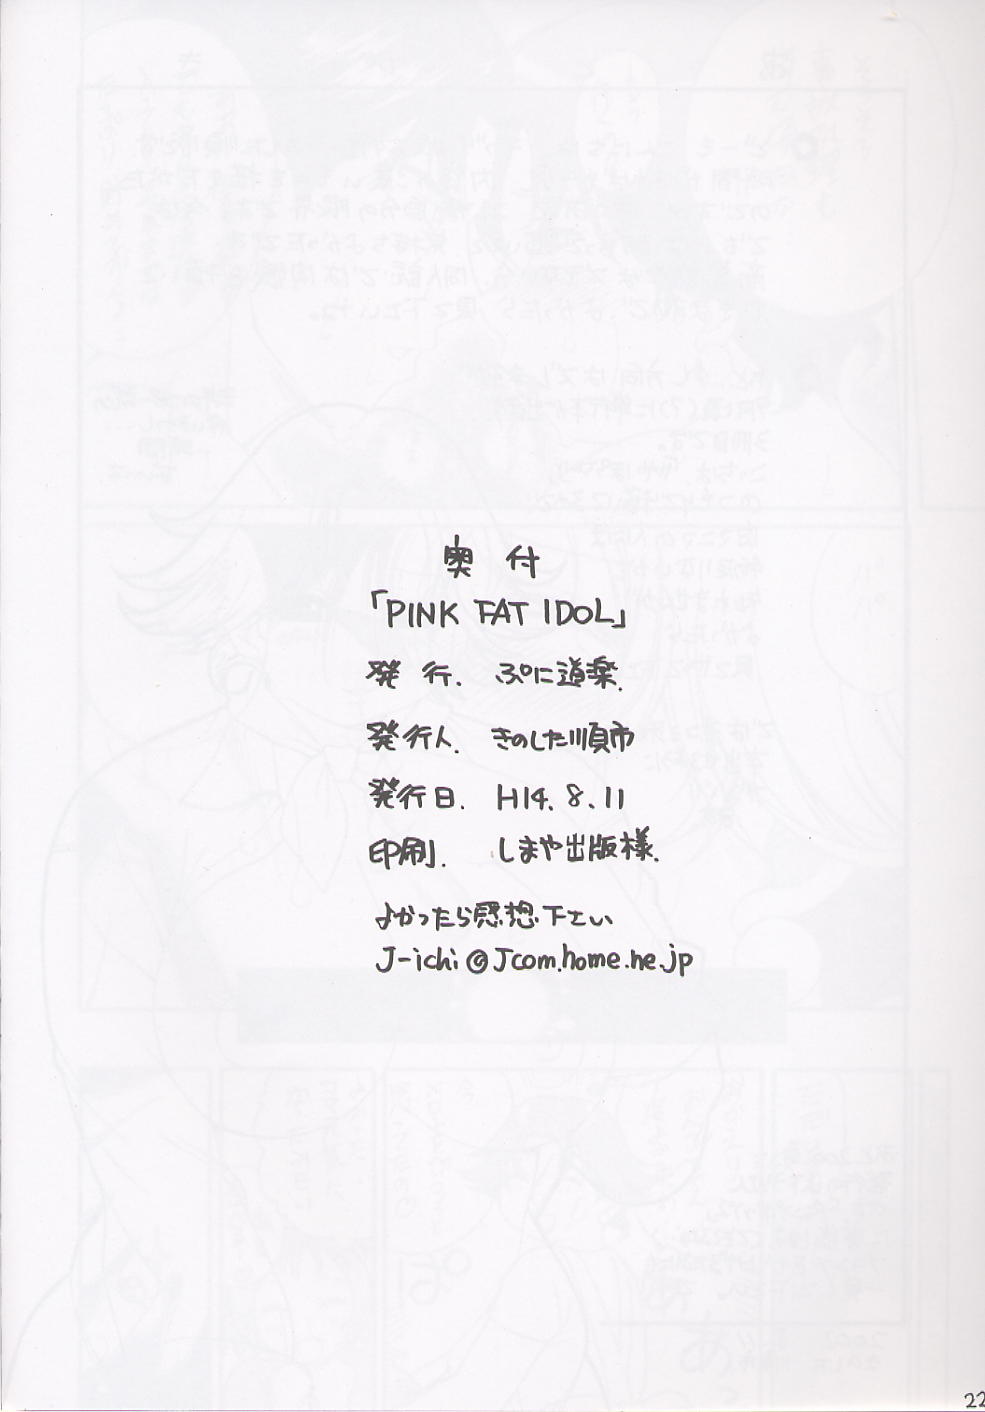 奥付
「PINK FAT IDOL」
発行. ぷに道楽.
発行人. きのした順市
発行日. H14. 8. 11
印刷. しまや出版様.
よかったら感想下さい
J-ichi@Jcom.home.ne.jp
22